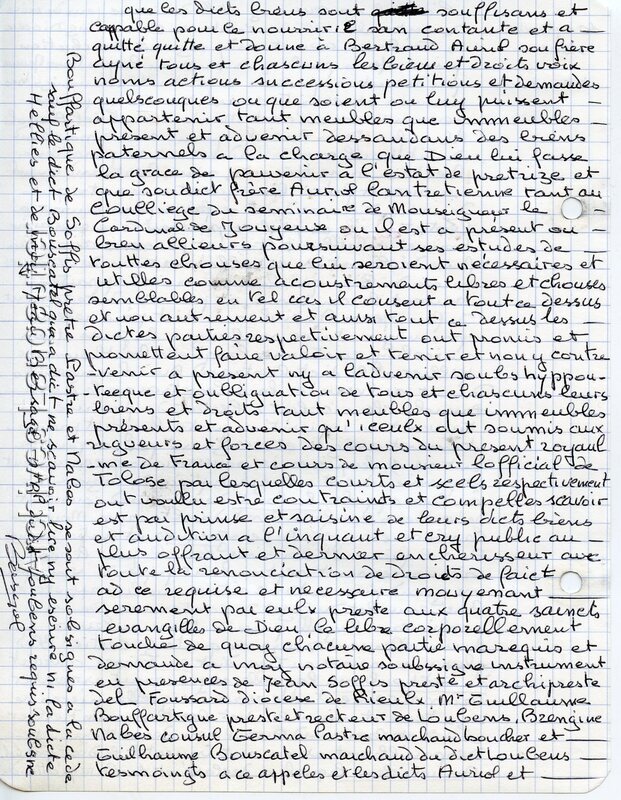 que les dicts biens sont souffisans et
cappable pour le nourrir son contante et a
quitté quitte et donne à Bertrand Auriol son frère
ayné tous et chascuns les biens et droits voix
noms actions successions petitions et demandes
quelscouques ou que soient ou luy puissent
appartenir tant meubles que immeubles
présent et advenir dessandans des biens
paternels a la charge que Dieu lui fasse
la grace de parvenir à l'estat de pretrize et
que sondict frère Auriol lantretienne tant au
Coulliege du seminaire de Monseigneur le
Cardinal de Jouyeux ou il est a present ou
bien allieurs poursuivant ses estudes de
touttes chouses que lui seroient nécessaires et
utilles comme acoustrements libres et chouses
semblables en tel cas il consent a tout ce dessus
et non autrement et ainsi tout ce dessus les
dictes parties respectivement ont promis et
promettent faire valoir et tenir et non y contre
-venir a present ny a l'advenir soubs hyppou-
-teeque et oulliguation de tous et chascuns leurs
biens et droits tant meubles que immeubles
présents et advenir qu'iceuls ont soumis aux
rigueurs et forces des cours du present royaul
-me de France et cours de monsieur lofficial de
Tolose par lesquelles courts et scels respectivement
ont voullu estre contraints et compelles scavoir
est par prinse et saisine de leurs dicts biens
et audition a l'inquant et cry public au
plus offrant et dernier encherisseur avec
toute la renonciation de droits de faict
ad ce requise et necessaire mouyenant
serement par eulx preste aux quatre saincts
evangilles de Dieu le libre corporellement
touché de quoy chacune partie ma requis et
demande a moy notaire soubssigne instrument
en presences de Jean Soffis prestre et archiprestre
del Foussard diocese de Rieulx Mre Guillaume
Bouffartigue prestre et recteur de Loubens, Brengine
Nabes consul Germa Pastre marchand boucher et
Guilhaume Bouscatel marchand du dict Loubens
tesmoingts a ce appeles et les dicts Auriol et
Bouffartigue de Soffis pretre Pastre et Nabos se sont soubsignes a la cède
sauf le dict Bouscatel que a dict ne scavoir lire ny escrire ni la dicte
Hellies et de moy Jean Bessagel notaire dudict Loubens requis soubsigne
Bessagel